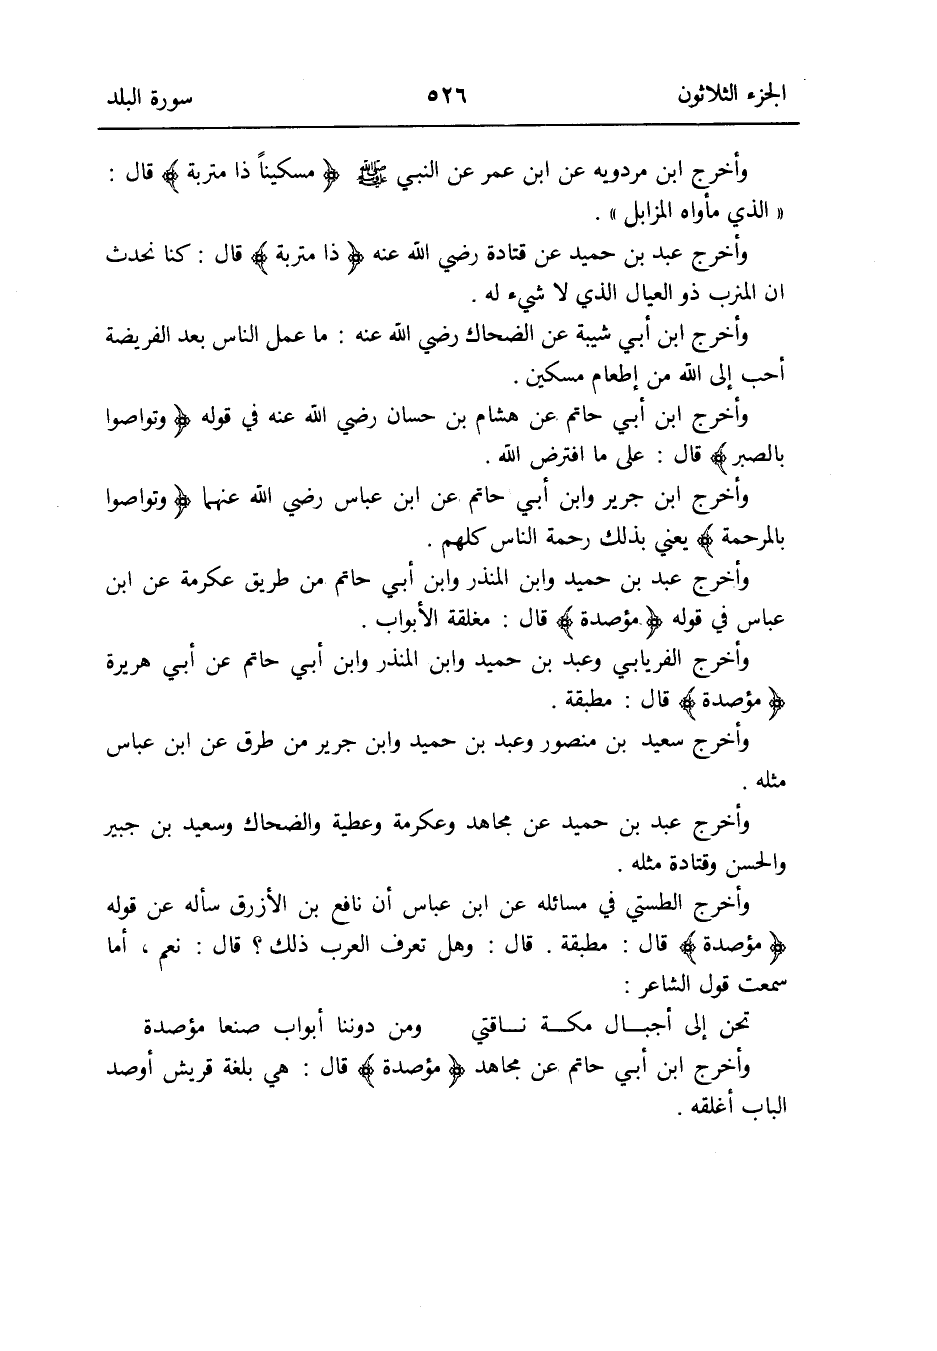 الجزء الثلاثون ٥٢٦ سورة البلد
وأخرج ابن مردويه عن ابن عمر عن النبي ﷺ ﴿ مسكيناً ذا متربة ﴾ قال :
« الذي مأواه المزابل » .
وأخرج عبد بن حميد عن قتادة رضي الله عنه ﴿ ذا متربة ﴾ قال : كنا نحدث
ان المترب ذو العيال الذي لا شيء له .
وأخرج ابن أبي شيبة عن الضحاك رضي الله عنه : ما عمل الناس بعد الفريضة
أحب إلى الله من إطعام مسكين .
وأخرج ابن أبي حاتم عن هشام بن حسان رضي الله عنه في قوله ﴿ وتواصوا
بالصبر ﴾ قال : على ما افترض الله .
وأخرج ابن جرير وابن أبي حاتم عن ابن عباس رضي الله عنهما ﴿ وتواصوا
بالمرحمة ﴾ يعني بذلك رحمة الناس كلهم .
وأخرج عبد بن حميد وابن المنذر وابن أبي حاتم من طريق عكرمة عن ابن
عباس في قوله ﴿ مؤصدة ﴾ قال : مغلقة الأبواب .
وأخرج الفريابي وعبد بن حميد وابن المنذر وابن أبي حاتم عن أبي هريرة
﴿ مؤصدة ﴾ قال : مطبقة .
وأخرج سعيد بن منصور وعبد بن حميد وابن جرير من طرق عن ابن عباس
مثله .
وأخرج عبد بن حميد عن مجاهد وعكرمة وعطية والضحاك وسعيد بن جبير
والحسن وقتادة مثله .
وأخرج الطستي في مسائله عن ابن عباس أن نافع بن الأزرق سأله عن قوله
﴿ مؤصدة ﴾ قال : مطبقة . قال : وهل تعرف العرب ذلك ؟ قال : نعم ، أما
سمعت قول الشاعر :
تحن إلى أجبـــال مكـــة نـــاقتي ومن دوننا أبواب صنعا مؤصدة
وأخرج ابن أبي حاتم عن مجاهد ﴿ مؤصدة ﴾ قال : هي بلغة قريش أوصد
الباب أغلقه .